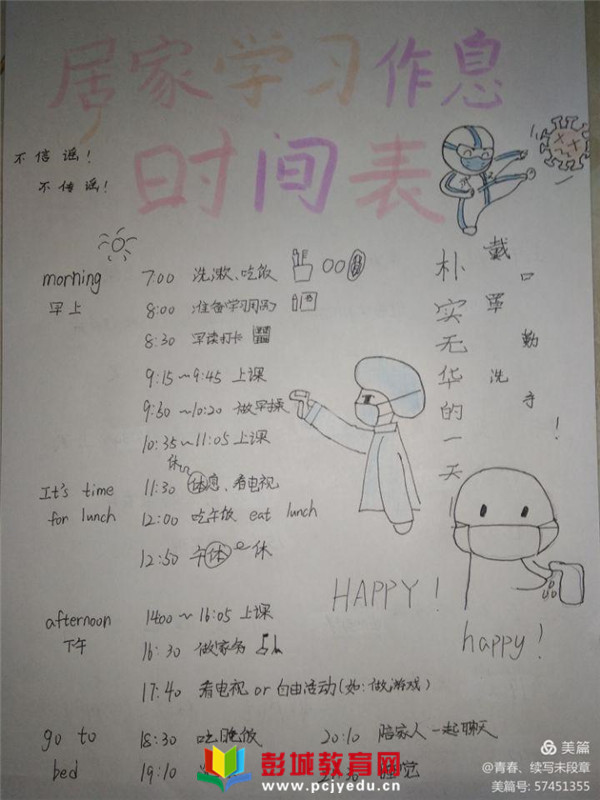 居家学习作息
时间表
不信谣！
不传谣！
戴口罩 勤洗手！
朴实无华的一天
morning 7:00 洗漱、吃饭
早上 8:00 准备学习用具
8:30 早读打卡
9:15~9:45 上课
9:50~10:20 做早操
10:35~11:05 上课
It's time 11:30 休息、看电视
for lunch 12:00 吃午饭 eat lunch
12:50 午休
HAPPY!
happy!
afternoon 1400~16:05 上课
下午 16:30 做家务
17:40 看电视 or 自由活动(如:做游戏)
go to 18:30 吃晚饭 20:10 陪家人一起聊天
bed 19:10
彭城教育网
www.pcjyedu.cn
美篇
@青春、续写未段章
美篇号: 57451355